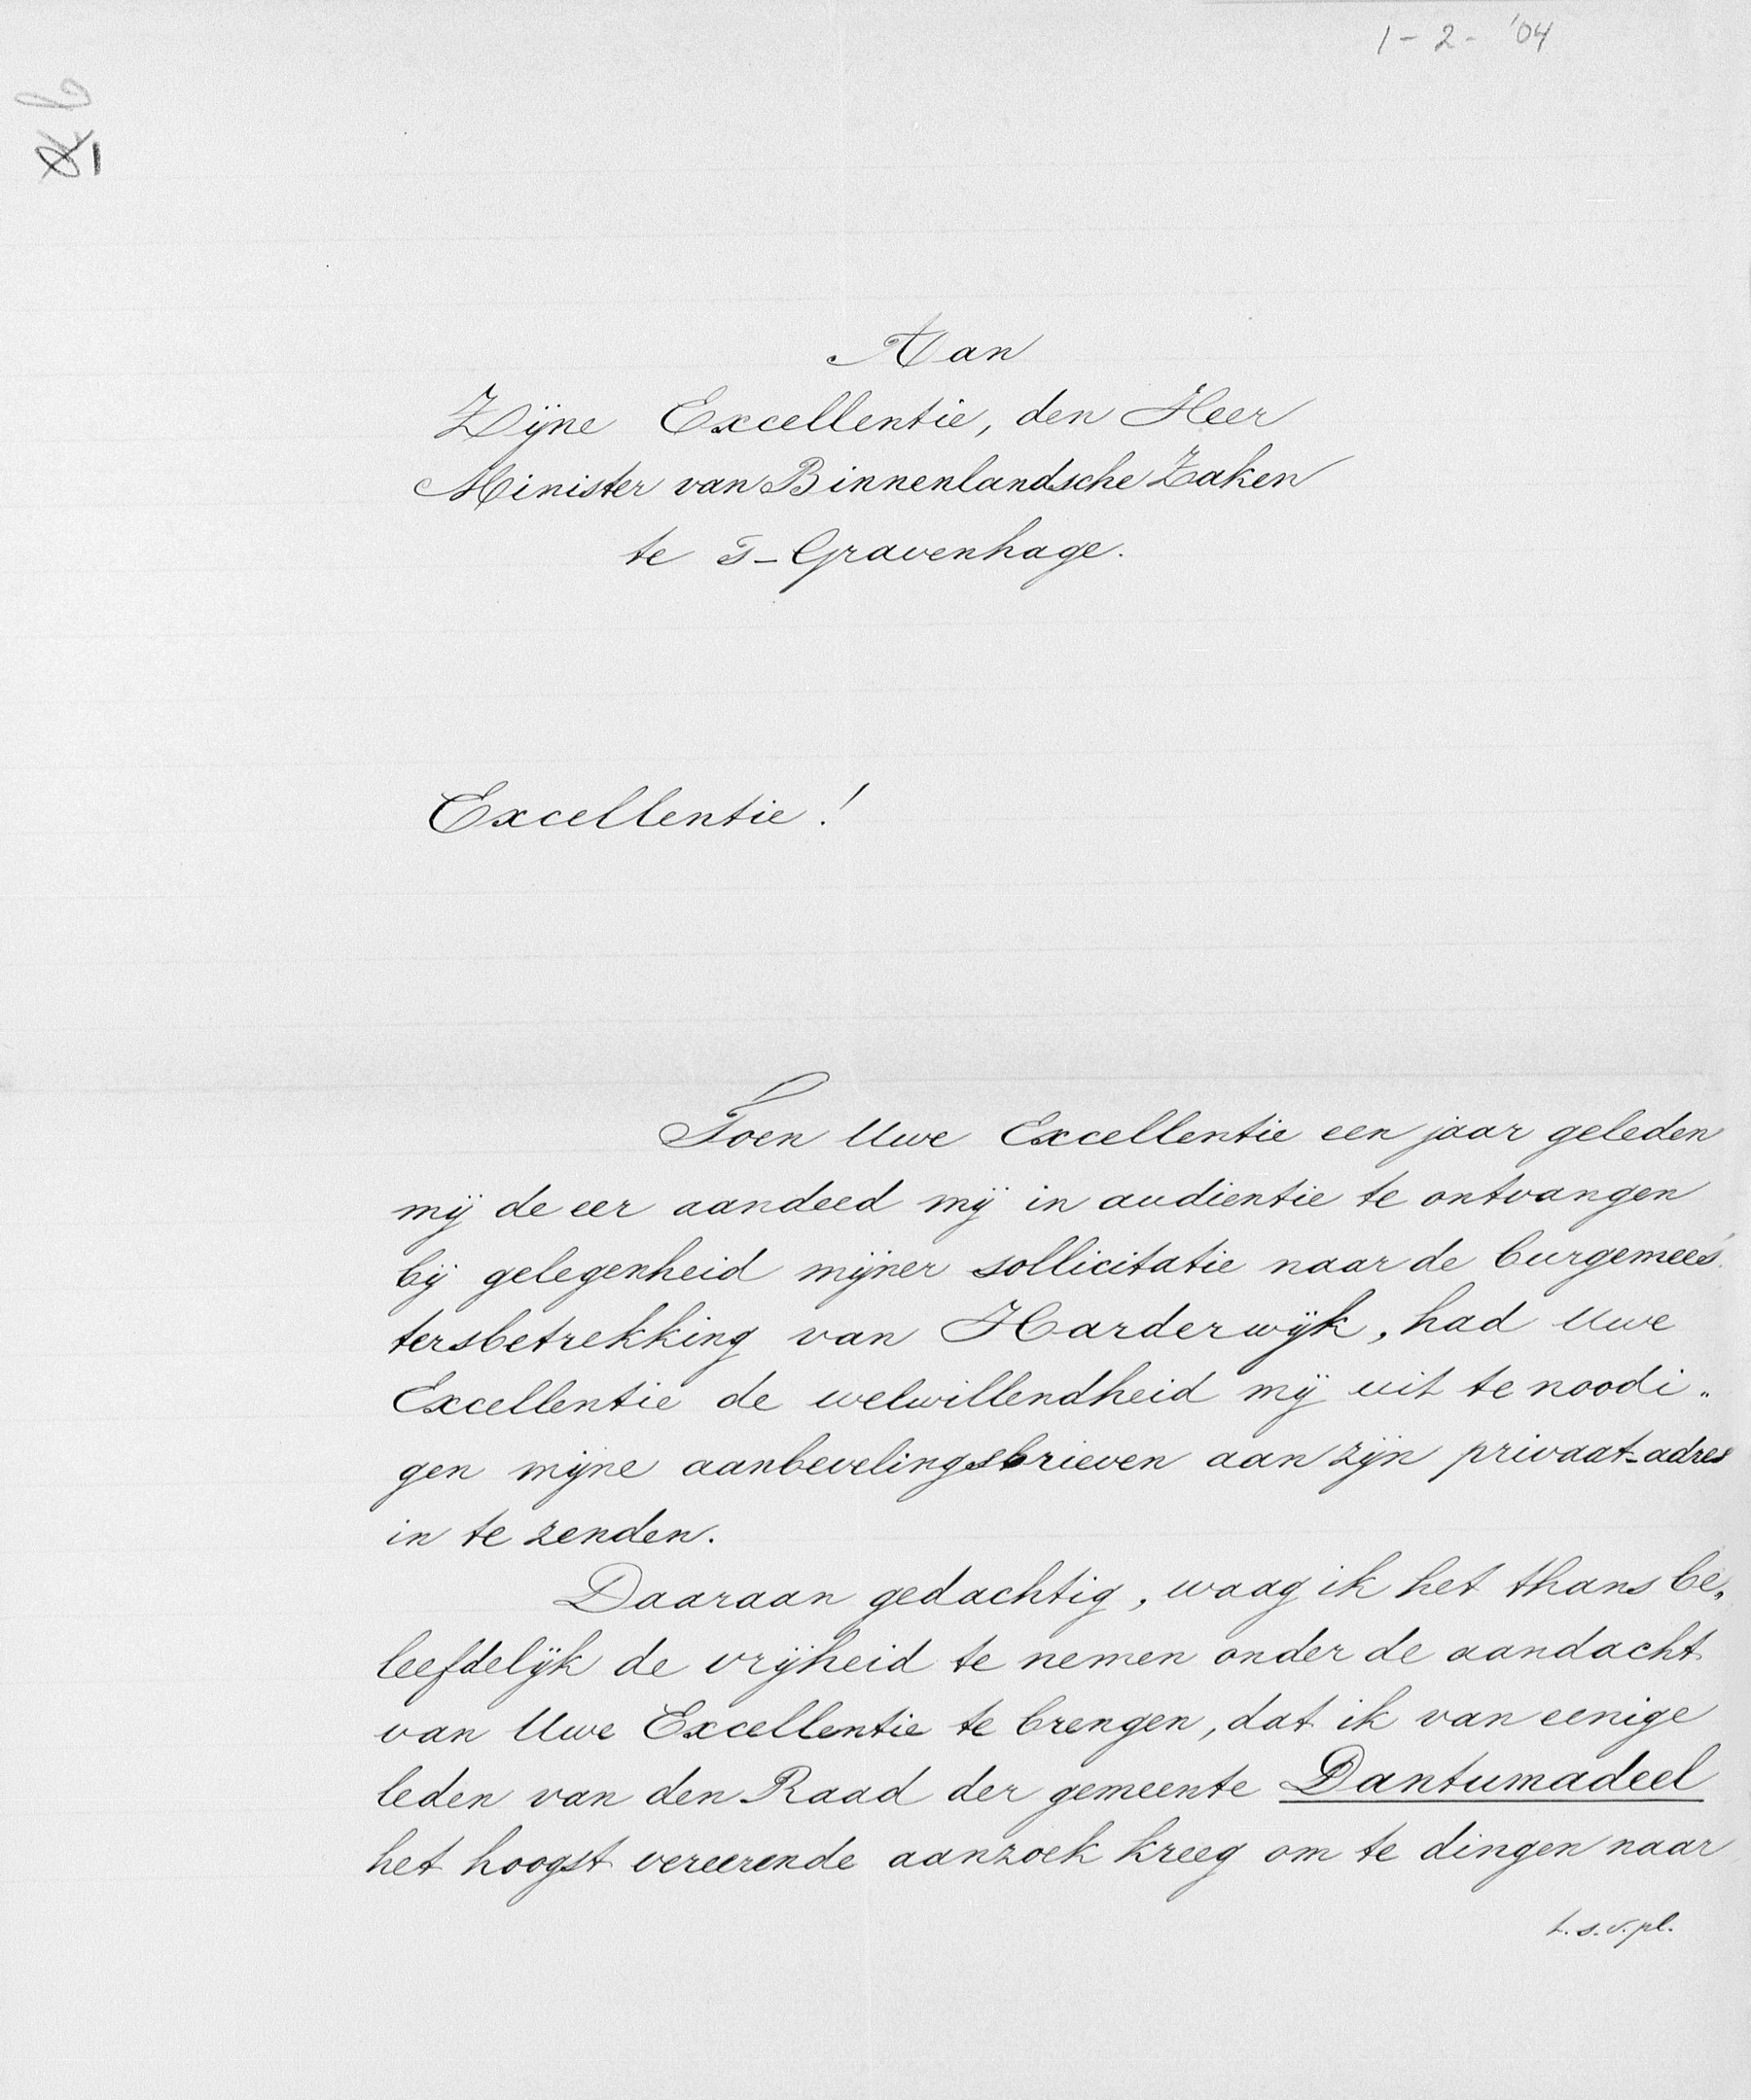 1-2-'04
Aan
Zijne Excellentie, den Heer
Minister van Binnenlandsche Zaken
te 's-Gravenhage.
Excellentie!
Toen Uwe Excellentie een jaar geleden
mij de eer aandeed mij in audientie te ontvangen
bij gelegenheid mijner sollicitatie naar de burgemees-
tersbetrekking van Harderwijk, had Uwe
Excellentie de welwillendheid mij uit te noodi„
gen mijne aanbevelingsbrieven aan zijn privaat-adres
in te zenden.
Daaraan gedachtig, waag ik het thans be„
leefdelijk de vrijheid te nemen onder de aandacht
van Uwe Excellentie te brengen, dat ik van eenige
leden van den Raad der gemeente Dantumadeel
het hoogst vereerende aanzoek kreeg om te dingen naar
t.s.v.pl.